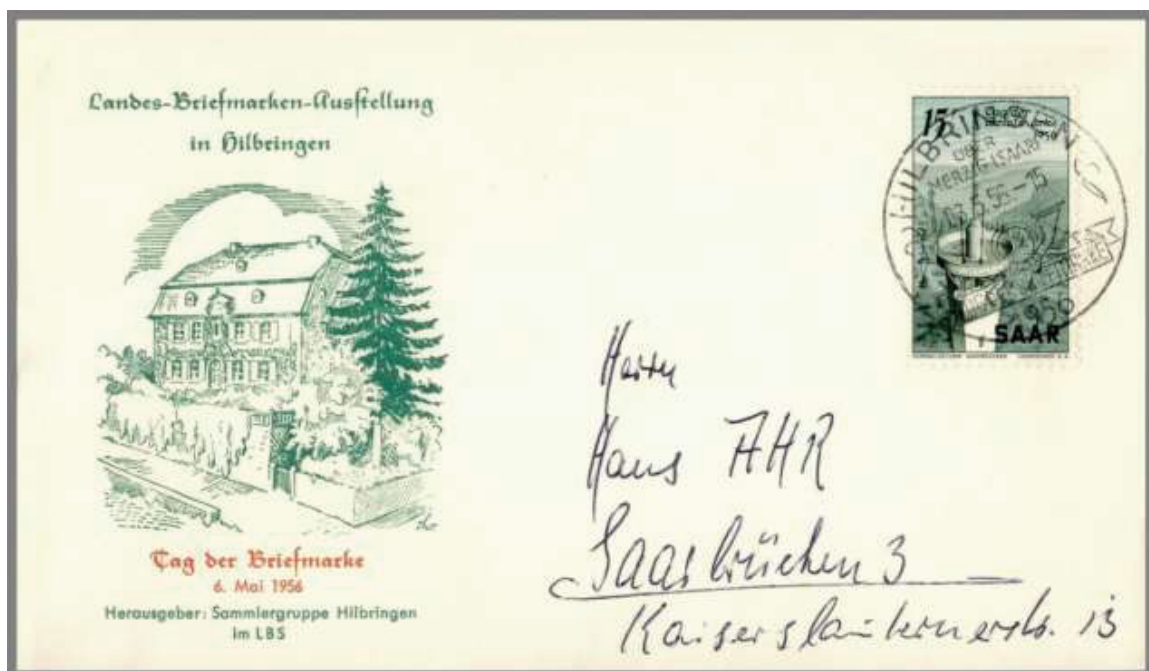 Landes-Briefmarken-Ausstellung
in Hilbringen
Tag der Briefmarke
6. Mai 1956
Herausgeber: Sammlergruppe Hilbringen
im LBS
15
1956
SAAR
HILBRINGEN
ÜBER
MERZIG (SAAR)
56-15
1956
Herrn
Hans AHR
Saarbrücken 3
Kaiserslauternerstr. 13